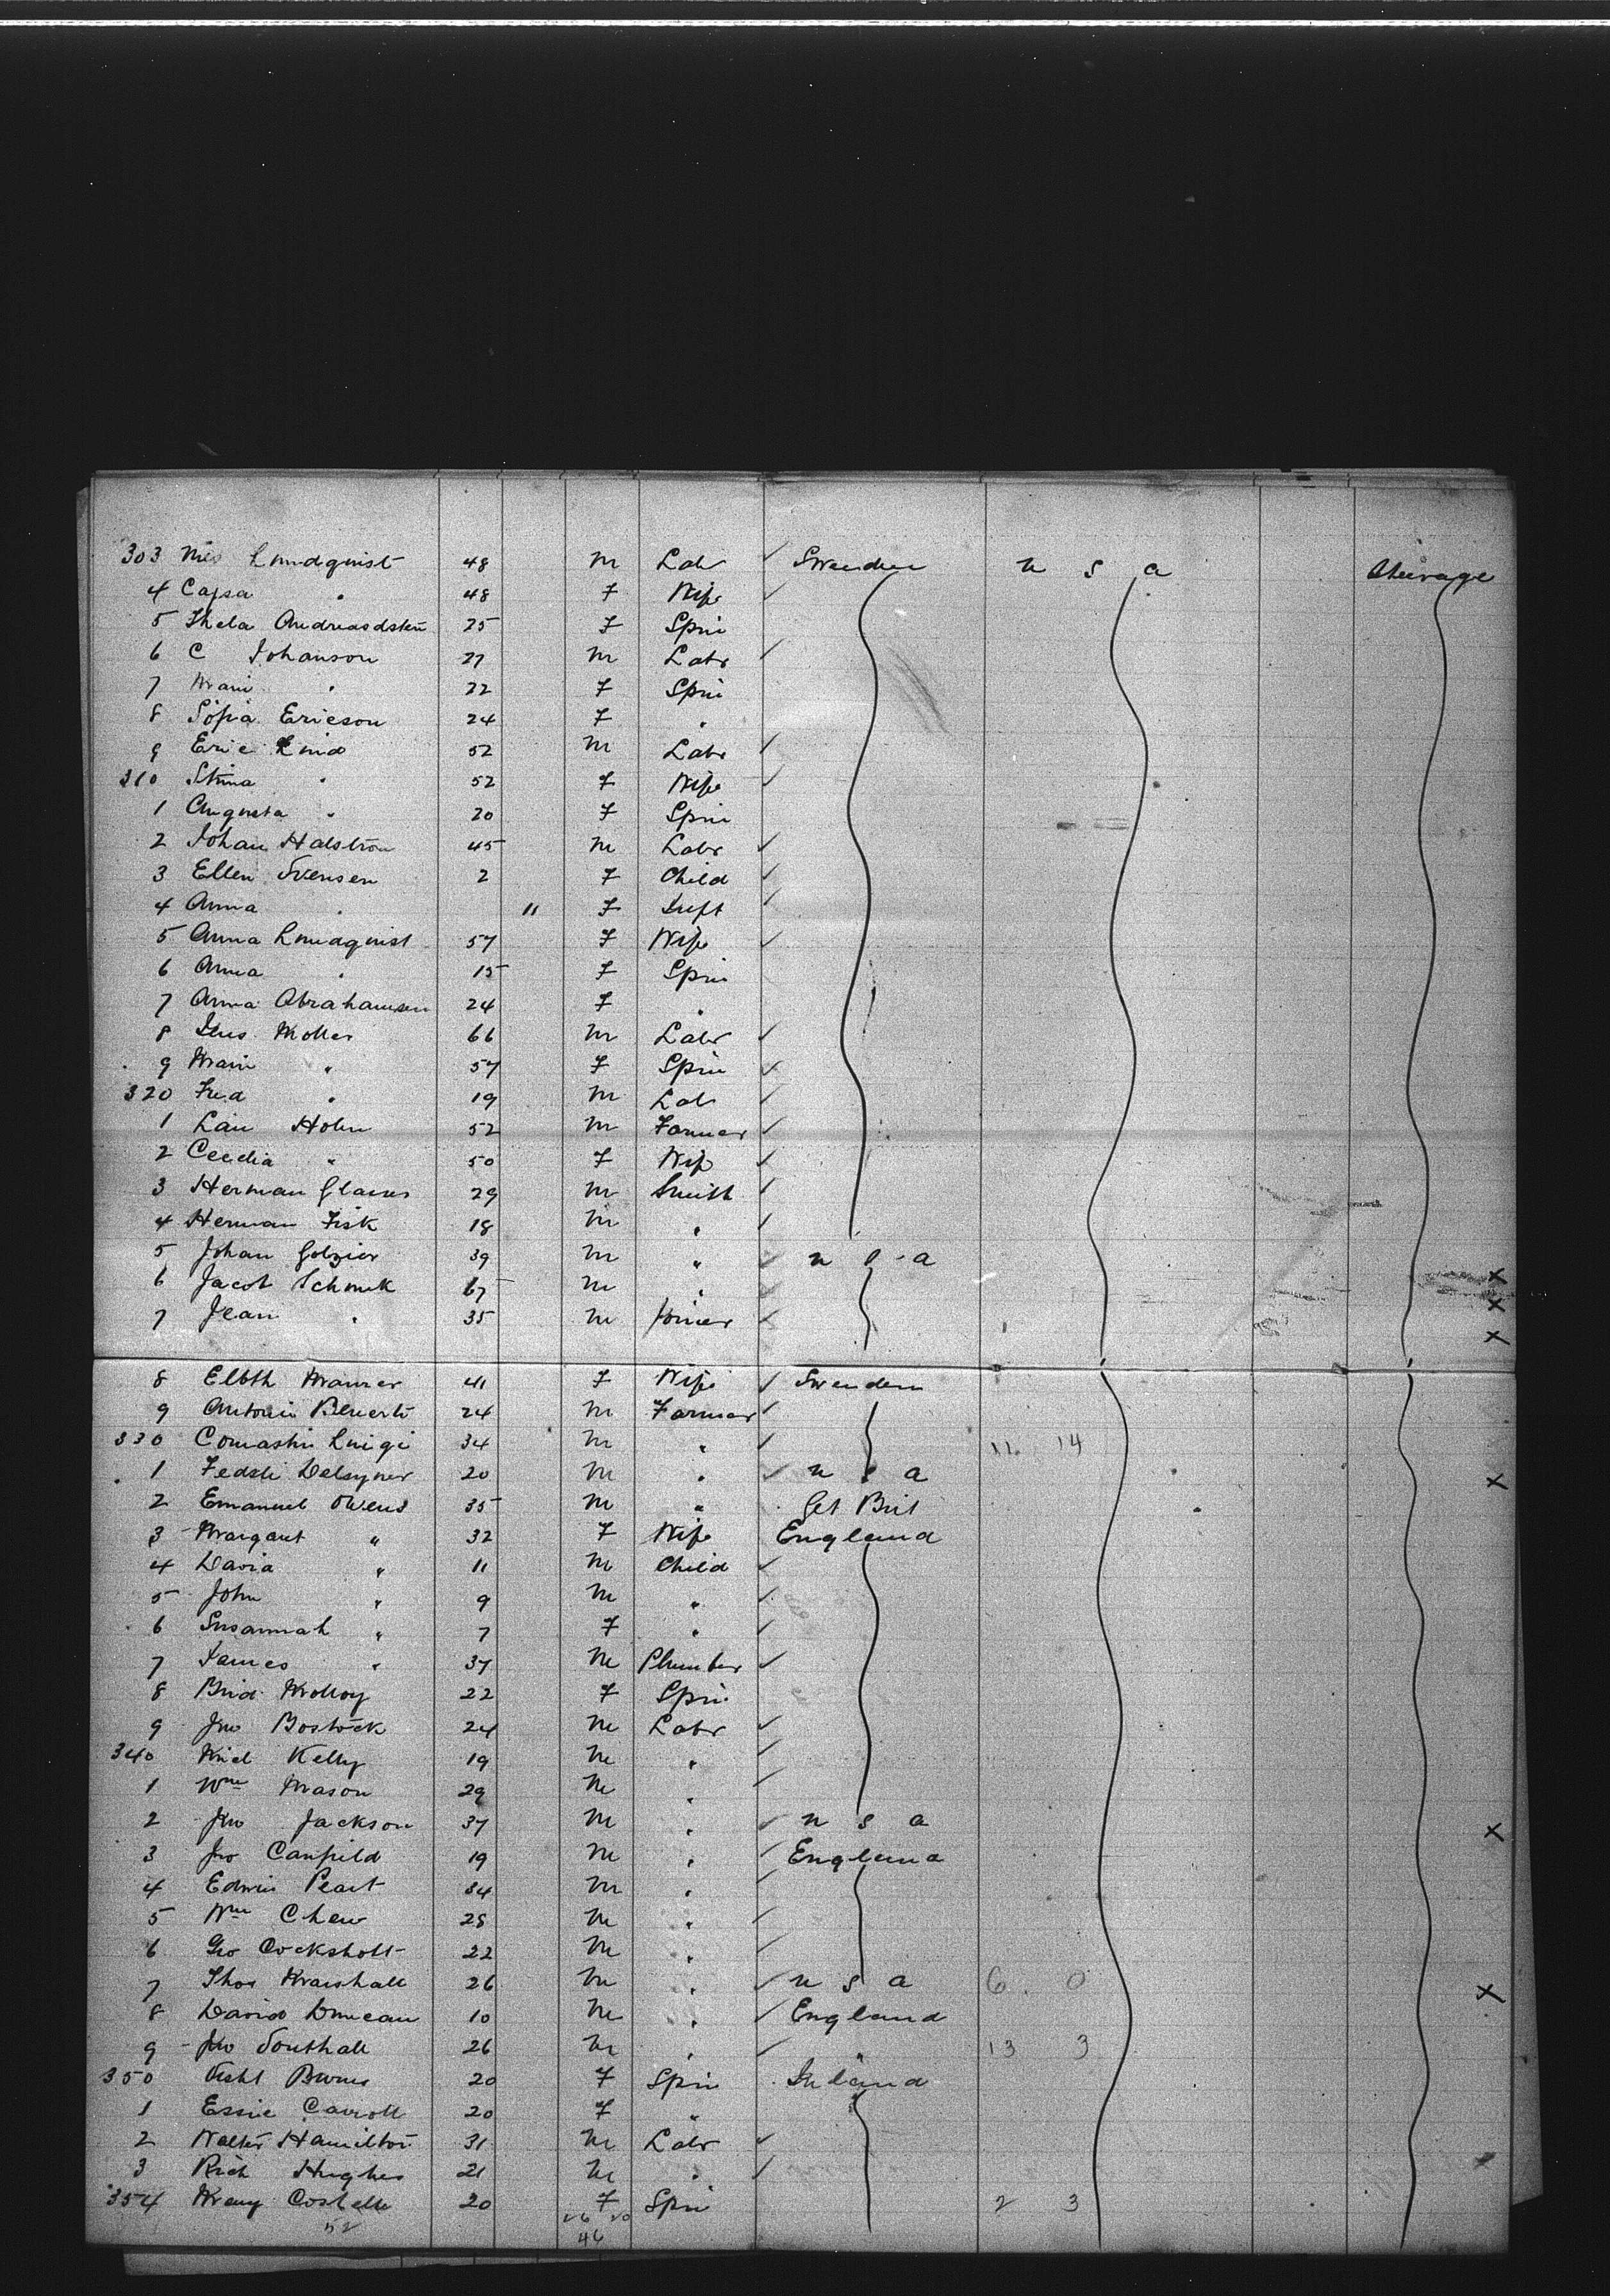 303 Nils Lundquist 48 M Labr ✓ Sweden U S A Steerage
4 Cajsa " 48 F Wife ✓
5 Thela 25 F Spin
6 C Johanson 27 M Labr ✓
7 Mari " 22 F Spin
8 Sofia Ericson 24 F "
9 Eric Lind 52 M Labr ✓
310 Stina " 52 F Wife ✓
1 Augusta " 20 F Spin
2 Johan Halström 45 M Labr ✓
3 Ellen Svensen 2 F Child ✓
4 Anna " 11 F Inft ✓
5 Anna Lundquist 57 F Wife ✓
6 Anna " 15 F Spin
7 Anna Abrahamsen 24 F "
8 Jens Moller 66 M Labr ✓
9 Mari " 57 F Spin ✓
320 Fred " 19 M Labr ✓
1 Holm 52 M Farmer ✓
2 Cecelia " 50 F Wife ✓
3 Herman 29 M Smith ✓
4 Herman Fisk 18 M " ✓
5 Johan 39 M " ✓ U S A X
6 Jacob Schmuk 67 M " ✓ X
7 Jean " 35 M Joiner ✓ X
8 Elbth Maurer 41 F Wife ✓ Sweden
9 Antonio 24 M Farmer ✓
330 Comashi Luigi 34 M " ✓ 11 14
1 20 M " ✓ U S A X
2 Emanuel Owens 35 M " Gt Brit
3 Margart " 32 F Wife England
4 David " 11 M Child ✓
5 John " 9 M " ✓
6 Susannah " 7 F " ✓
7 James " 37 M Plumber ✓
8 Brid Molloy 22 F Spin
9 Jno Bostock 24 M Labr ✓
340 Micl Kelly 19 M " ✓
1 Wm Mason 29 M " ✓
2 Jno Jackson 37 M " ✓ U S A X
3 Jno Canfield 19 M " ✓ England
4 Edwin Peart 34 M " ✓
5 Wm Chew 28 M " ✓
6 Geo Cockshott 22 M " ✓
7 Thos Marshall 26 M " ✓ U S A 6 0 X
8 David Duncan 10 M " ✓ England
9 Jno Southall 26 M " ✓ " 13 3
350 Burns 20 F Spin Ireland
1 Essie Carroll 20 F "
2 Walter Hamilton 31 M Labr ✓
3 Rich Hughes 21 M " ✓
354 Mary Costello 20 F Spin 2 3
52 26 20
46